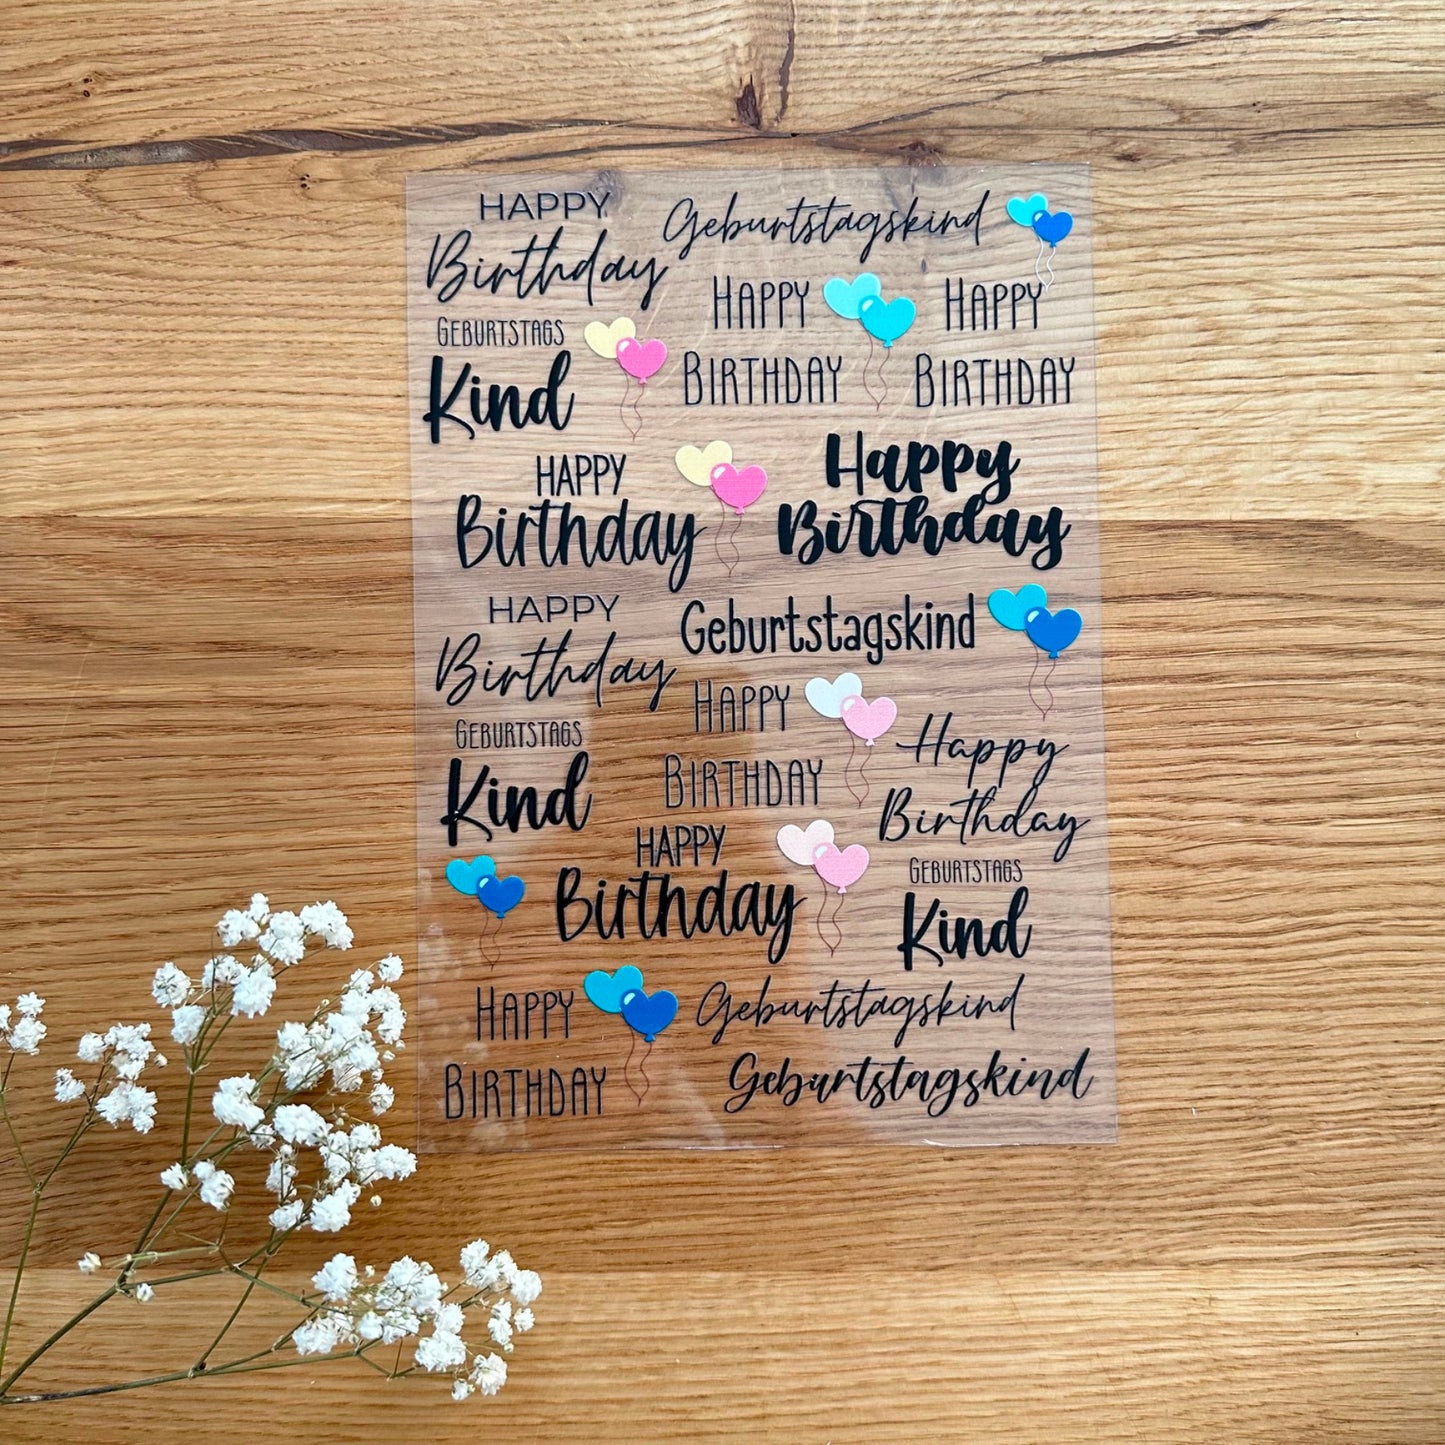 HAPPY
Birthday
Geburtstagskind
HAPPY
BIRTHDAY
HAPPY
BIRTHDAY
GEBURTSTAGS
Kind
HAPPY
Birthday
Happy
Birthday
HAPPY
Birthday
Geburtstagskind
HAPPY
BIRTHDAY
GEBURTSTAGS
Kind
Happy
Birthday
HAPPY
Birthday
GEBURTSTAGS
Kind
HAPPY
BIRTHDAY
Geburtstagskind
Geburtstagskind